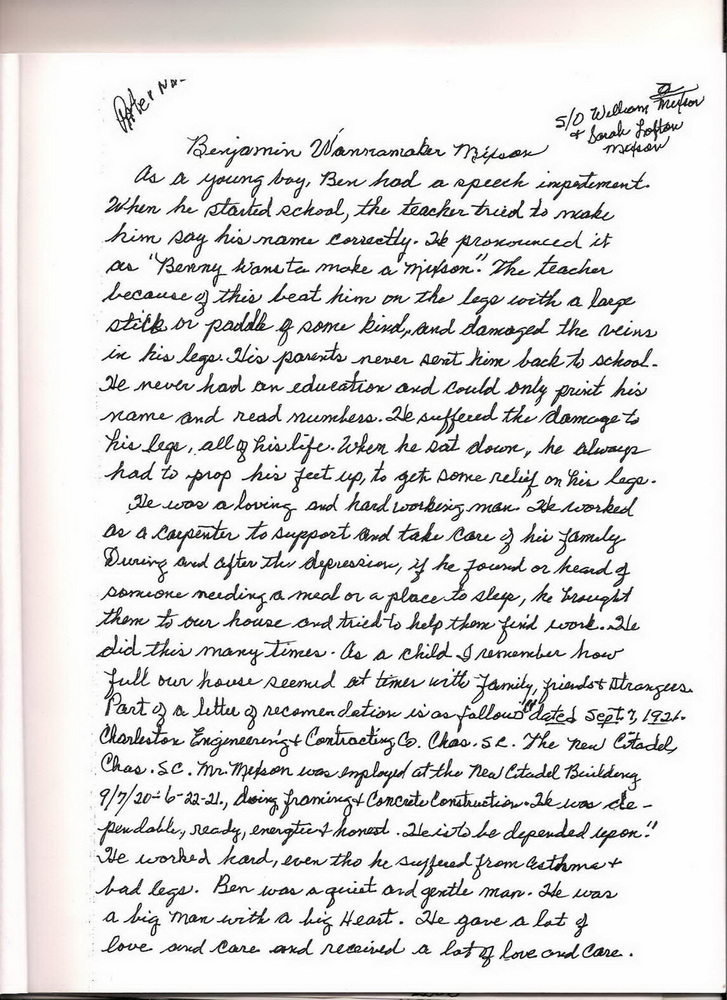 S/O William Mixson
& Sarah Lofton
Mixson
Benjamin Wannamaker Mixson
As a young boy, Ben had a speech impediment.
When he started school, the teacher tried to make
him say his name correctly. He pronounced it
as "Benny wans to make a Mixson". The teacher
because of this beat him on the legs with a large
stick or paddle of some kind, and damaged the veins
in his legs. His parents never sent him back to school.
He never had an education and could only print his
name and read numbers. He suffered the damage to
his legs, all of his life. When he sat down, he always
had to prop his feet up, to get some relief on his legs.
He was a loving and hard working man. He worked
as a carpenter to support and take care of his family.
During and after the depression, if he found or heard of
someone needing a meal or a place to sleep, he brought
them to our house and tried to help them find work. He
did this many times. As a child I remember how
full our house seemed at times with family, friends & strangers.
Part of a letter of recomendation is as follow "dated Sept. 7, 1921.
Charleston Engineering & Contracting Co. Chas. S.C. The New Citadel,
Chas. S.C. Mr. Mixson was employed at the New Citadel Building
9/7/20-6-22-21., doing framing & Concrete Construction. He was de-
pendable, ready, energtic & honest. He is to be depended upon."
He worked hard, even tho he suffered from asthma &
bad legs. Ben was a quiet and gentle man. He was
a big man with a big Heart. He gave a lot of
love and care and received a lot of love and care.